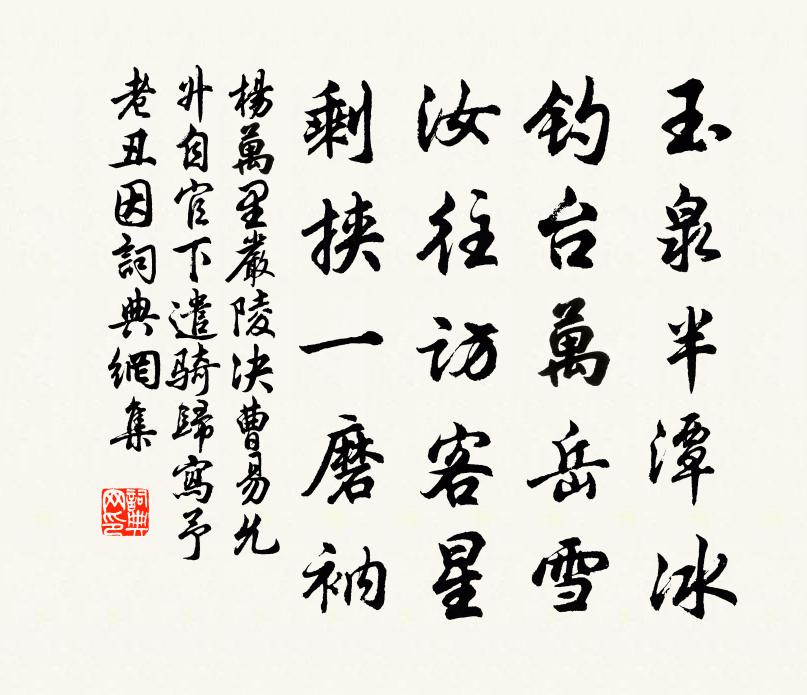 玉泉半潭冰
钓台萬岳雪
汝往访客星
剩挟一磨衲
楊萬里嚴陵决曹易允
升自官下遣骑歸寫予
老丑因詞典網集
詞典网印